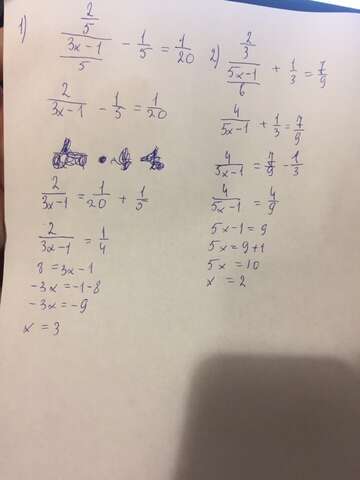 1) (2/5)/((3x-1)/5) - 1/5 = 1/20
2/(3x-1) - 1/5 = 1/20
2/(3x-1) = 1/20 + 1/5
2/(3x-1) = 1/4
8 = 3x-1
-3x = -1-8
-3x = -9
x = 3
2) (2/3)/((5x-1)/6) + 1/3 = 7/9
4/(5x-1) + 1/3 = 7/9
4/(5x-1) = 7/9 - 1/3
4/(5x-1) = 4/9
5x-1 = 9
5x = 9+1
5x = 10
x = 2